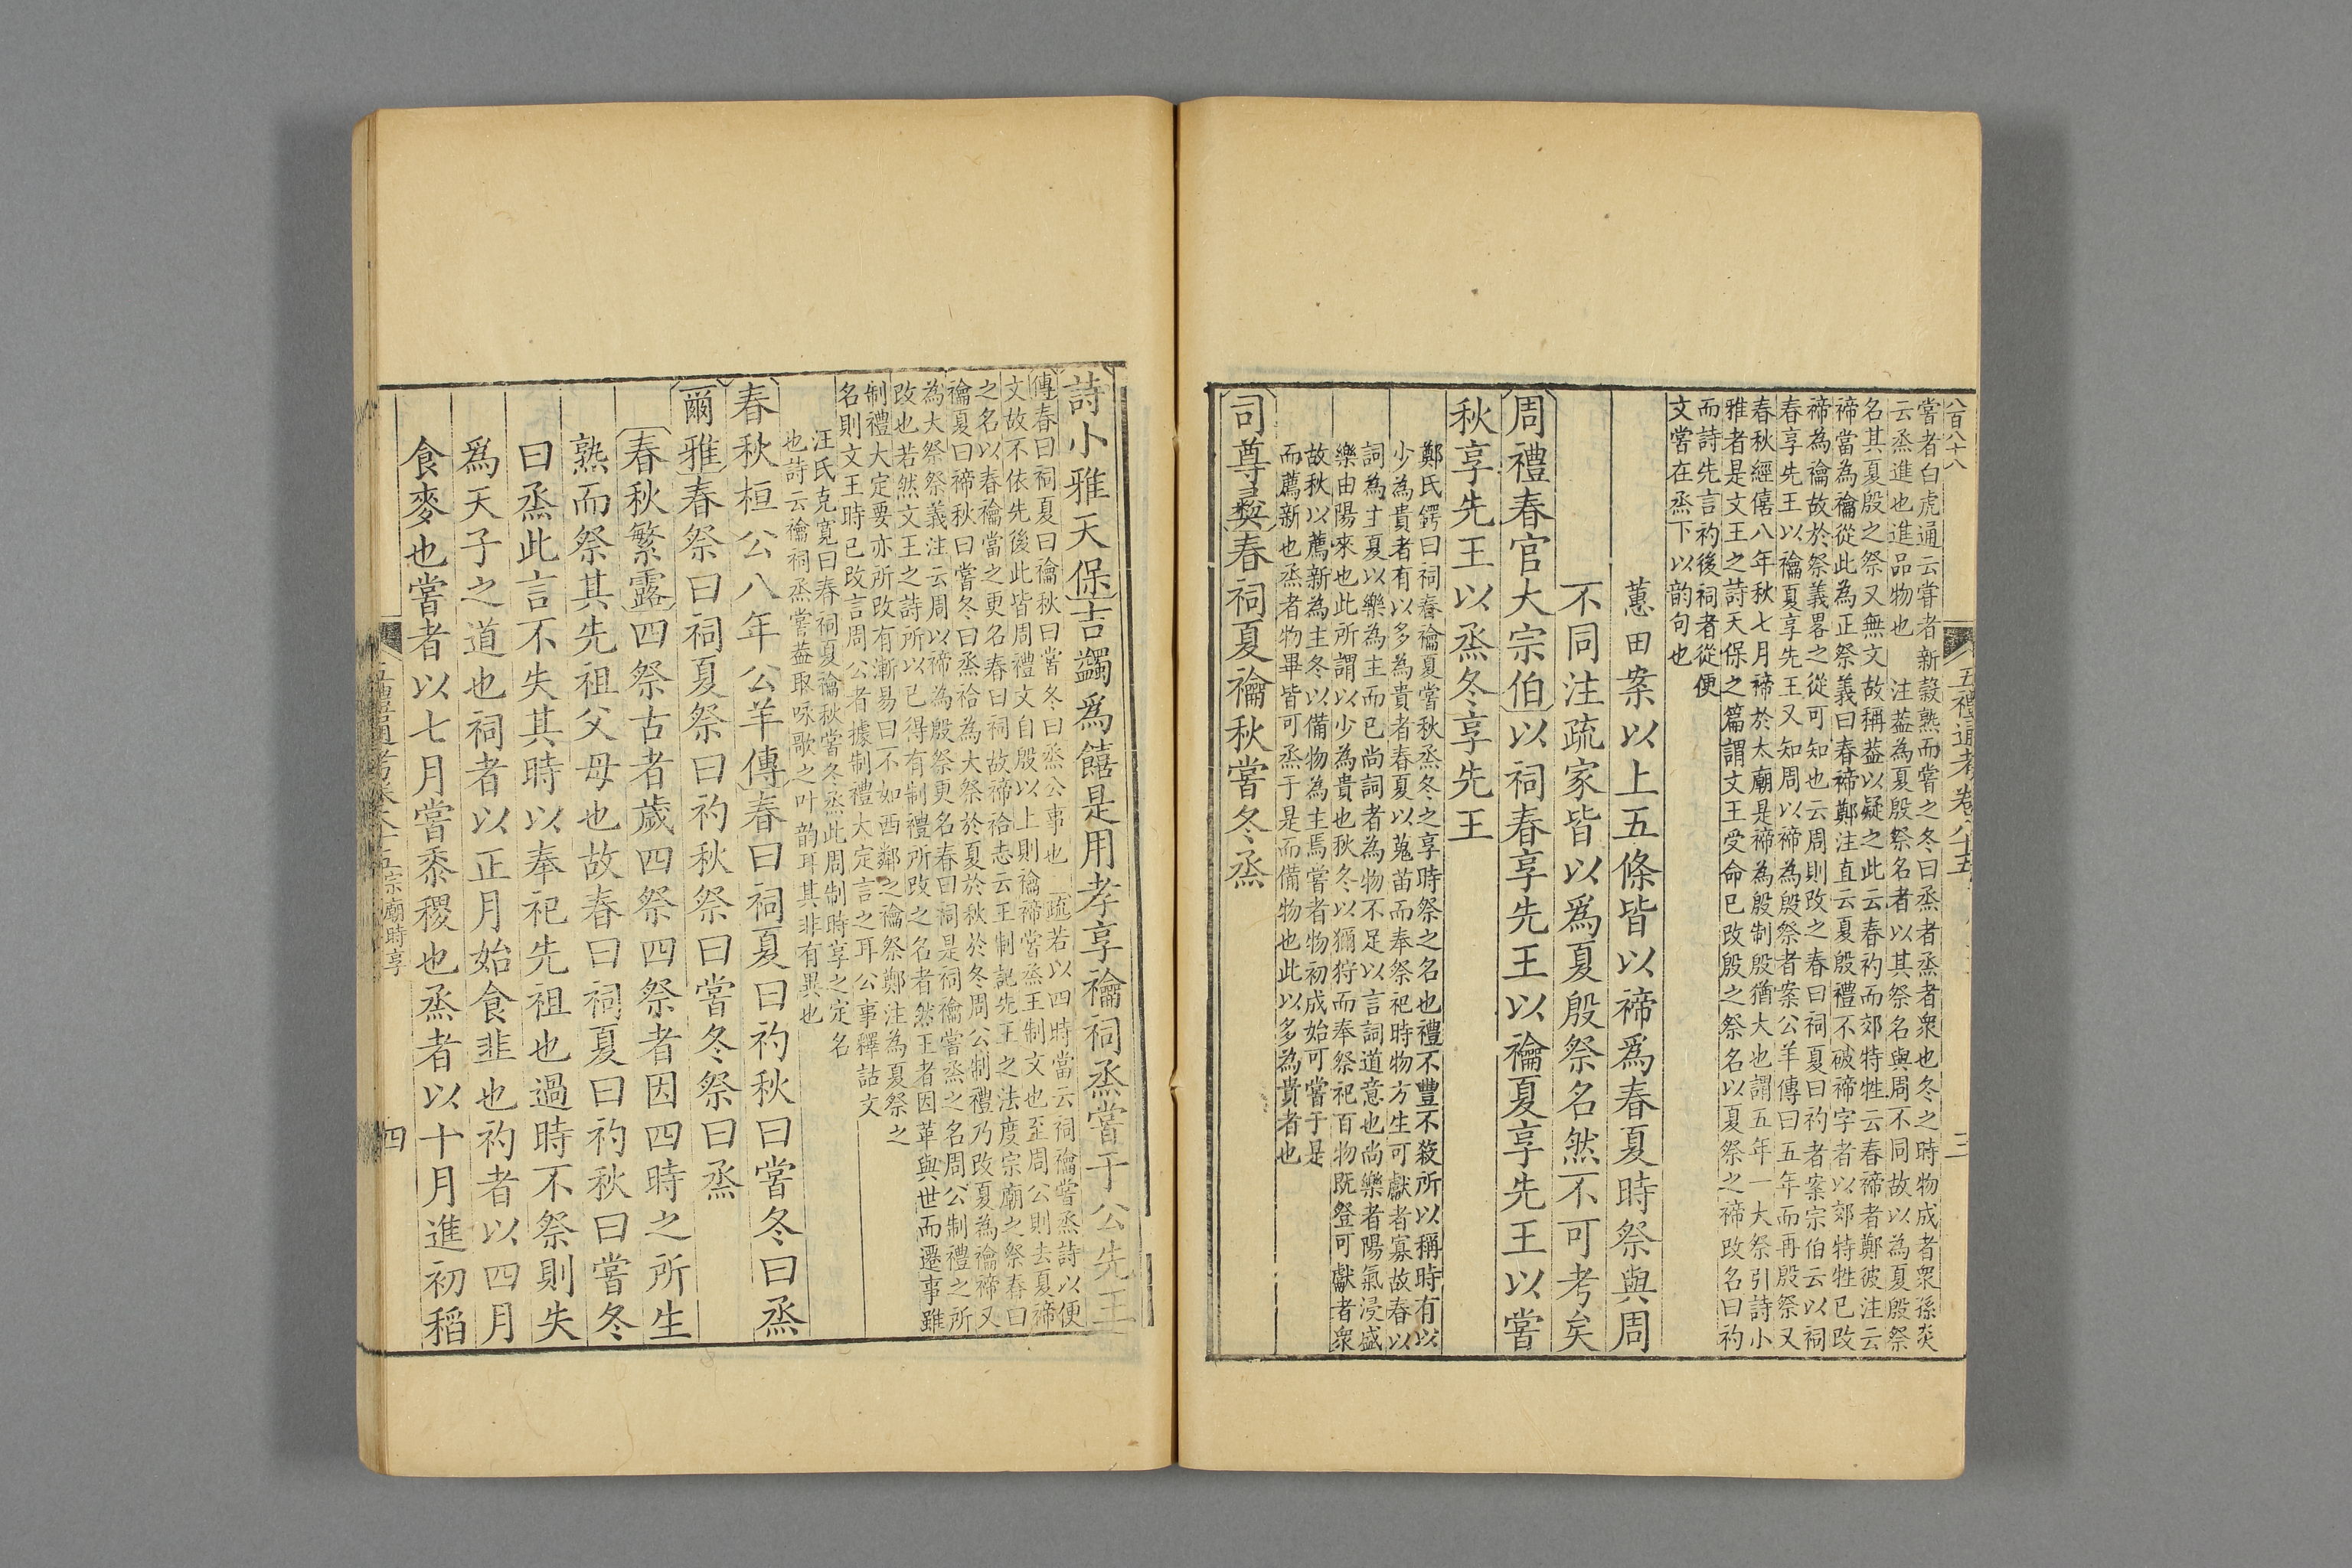 八百八十八
五禮通考卷八十五
三
嘗者白虎通云嘗者新穀熟而嘗之冬曰烝者烝者衆也冬之時物成者衆孫炎
云烝進也進品物也　注葢為夏殷祭名者以其祭名與周不同故以為夏殷祭
名其夏殷之祭又無文故稱葢以疑之此云春礿而郊特牲云春禘者鄭彼注云
禘當為禴從此為正祭義曰春禘鄭注直云夏殷禮不破禘字者以郊特牲已改
禘為禴故於祭義畧之從可知也云周則改之春曰祠夏曰礿者案宗伯云以祠
春享先王以禴夏享先王又知周以禘為殷祭者案公羊傳曰五年而再殷祭又
春秋經僖八年秋七月禘於太廟是禘為殷制殷猶大也謂五年一大祭引詩小
雅者是文王之詩天保之篇謂文王受命已改殷之祭名以夏祭之禘改名曰礿
而詩先言礿後祠者從便
文嘗在烝下以韵句也
蕙田案以上五條皆以禘爲春夏時祭與周
不同注疏家皆以爲夏殷祭名然不可考矣
周禮春官大宗伯以祠春享先王以禴夏享先王以嘗
秋享先王以烝冬享先王
鄭氏鍔曰祠春禴夏嘗秋烝冬之享時祭之名也禮不豐不殺所以稱時有以
少為貴者有以多為貴者春夏以蒐苗而奉祭祀時物方生可獻者寡故春以
詞為主夏以樂為主而已尚詞者為物不足以言詞道意也尚樂者陽氣浸盛
樂由陽來也此所謂以少為貴也秋冬以獮狩而奉祭祀百物既登可獻者衆
故秋以薦新為主冬以備物為主焉嘗者物初成始可嘗于是
而薦新也烝者物畢皆可烝于是而備物也此以多為貴者也
司尊彝春祠夏禴秋嘗冬烝
詩小雅天保吉蠲爲饎是用孝享禴祠烝嘗于公先王
傳春曰祠夏曰禴秋曰嘗冬曰烝公事也　疏若以四時當云祠禴嘗烝詩以便
文故不依先後此皆周禮文自殷以上則禴禘嘗烝王制文也至周公則去夏禘
之名以春禴當之更名春曰祠故禘祫志云王制記先王之法度宗廟之祭春曰
禴夏曰禘秋曰嘗冬曰烝祫為大祭於夏於秋於冬周公制禮乃改夏為禴禘又
為大祭祭義注云周以禘為殷祭更名春曰祠是祠禴嘗烝之名周公制禮之所
改也若然文王之詩所以已得有制禮所改之名者然王者因革與世而遷事雖
制禮大定要亦所改有漸易曰不如西鄰之禴祭鄭注為夏祭之
名則文王時已改言周公者據制禮大定言之耳公事釋詁文
汪氏克寬曰春祠夏禴秋嘗冬烝此周制時享之定名
也詩云禴祠烝嘗葢取咏歌之叶韵耳其非有異也
春秋桓公八年公羊傳春曰祠夏曰礿秋曰嘗冬曰烝
爾雅春祭曰祠夏祭曰礿秋祭曰嘗冬祭曰烝
春秋繁露四祭古者歲四祭四祭者因四時之所生
熟而祭其先祖父母也故春曰祠夏曰礿秋曰嘗冬
曰烝此言不失其時以奉祀先祖也過時不祭則失
爲天子之道也祠者以正月始食韭也礿者以四月
食麥也嘗者以七月嘗黍稷也烝者以十月進初稻
五禮通考卷八十五宗廟時享
四